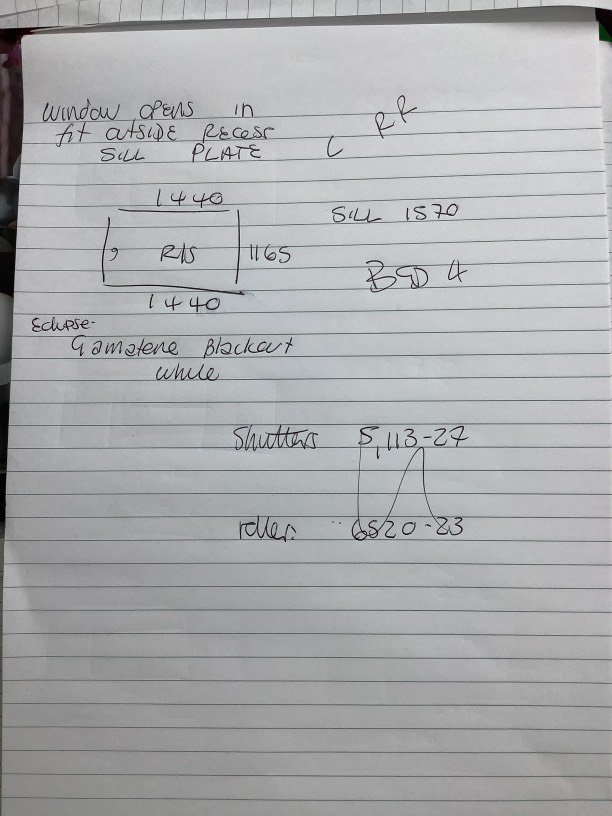 WINDOW OPENS IN
fit OUTSIDE RECESS
SILL PLATE L RR
1440
SILL 1570
R/S 1165
BED 4
1440
Eclipse-
Blackout
white
Shutters 5,113-27
roller: 6520-23